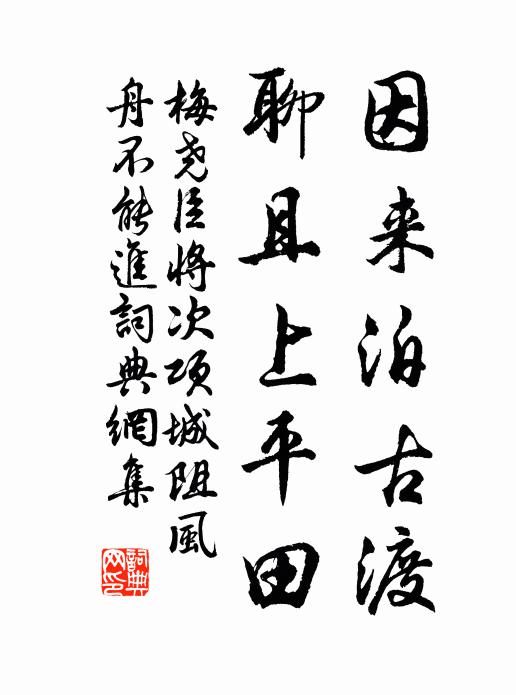 因来泊古渡
聊且上平田
梅尧臣将次项城阻風
舟不能進詞典網集
詞典網印